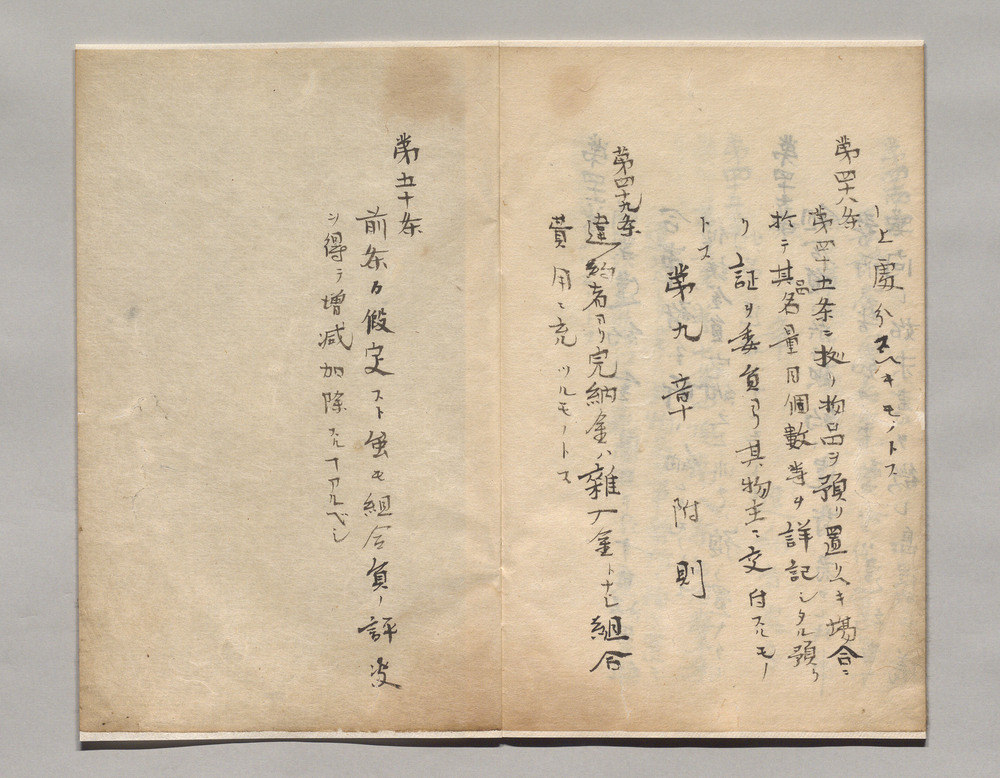 ノ上處分スヘキモノトス
第四十八条
第四十五条ニ拠リ物品ヲ預リ置クヘキ場合ニ
於テ其品名量目個數等ヲ詳記シタル預リ
リ証ヲ委員ヨリ其物主ニ交付スルモノ
トス
第九章 附則
第四十九条
違約者ヨリ完納金ハ雜入金トナシ組合
費用ニ充ツルモノトス
第五十条
前条ヲ假定スト虽モ組合員ノ評決
ヲ得テ増减加除スルコトアルベシ